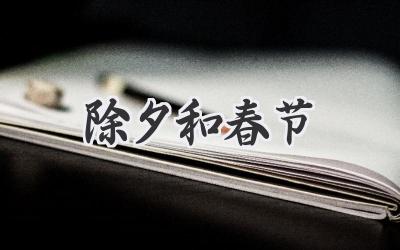 除夕和春节